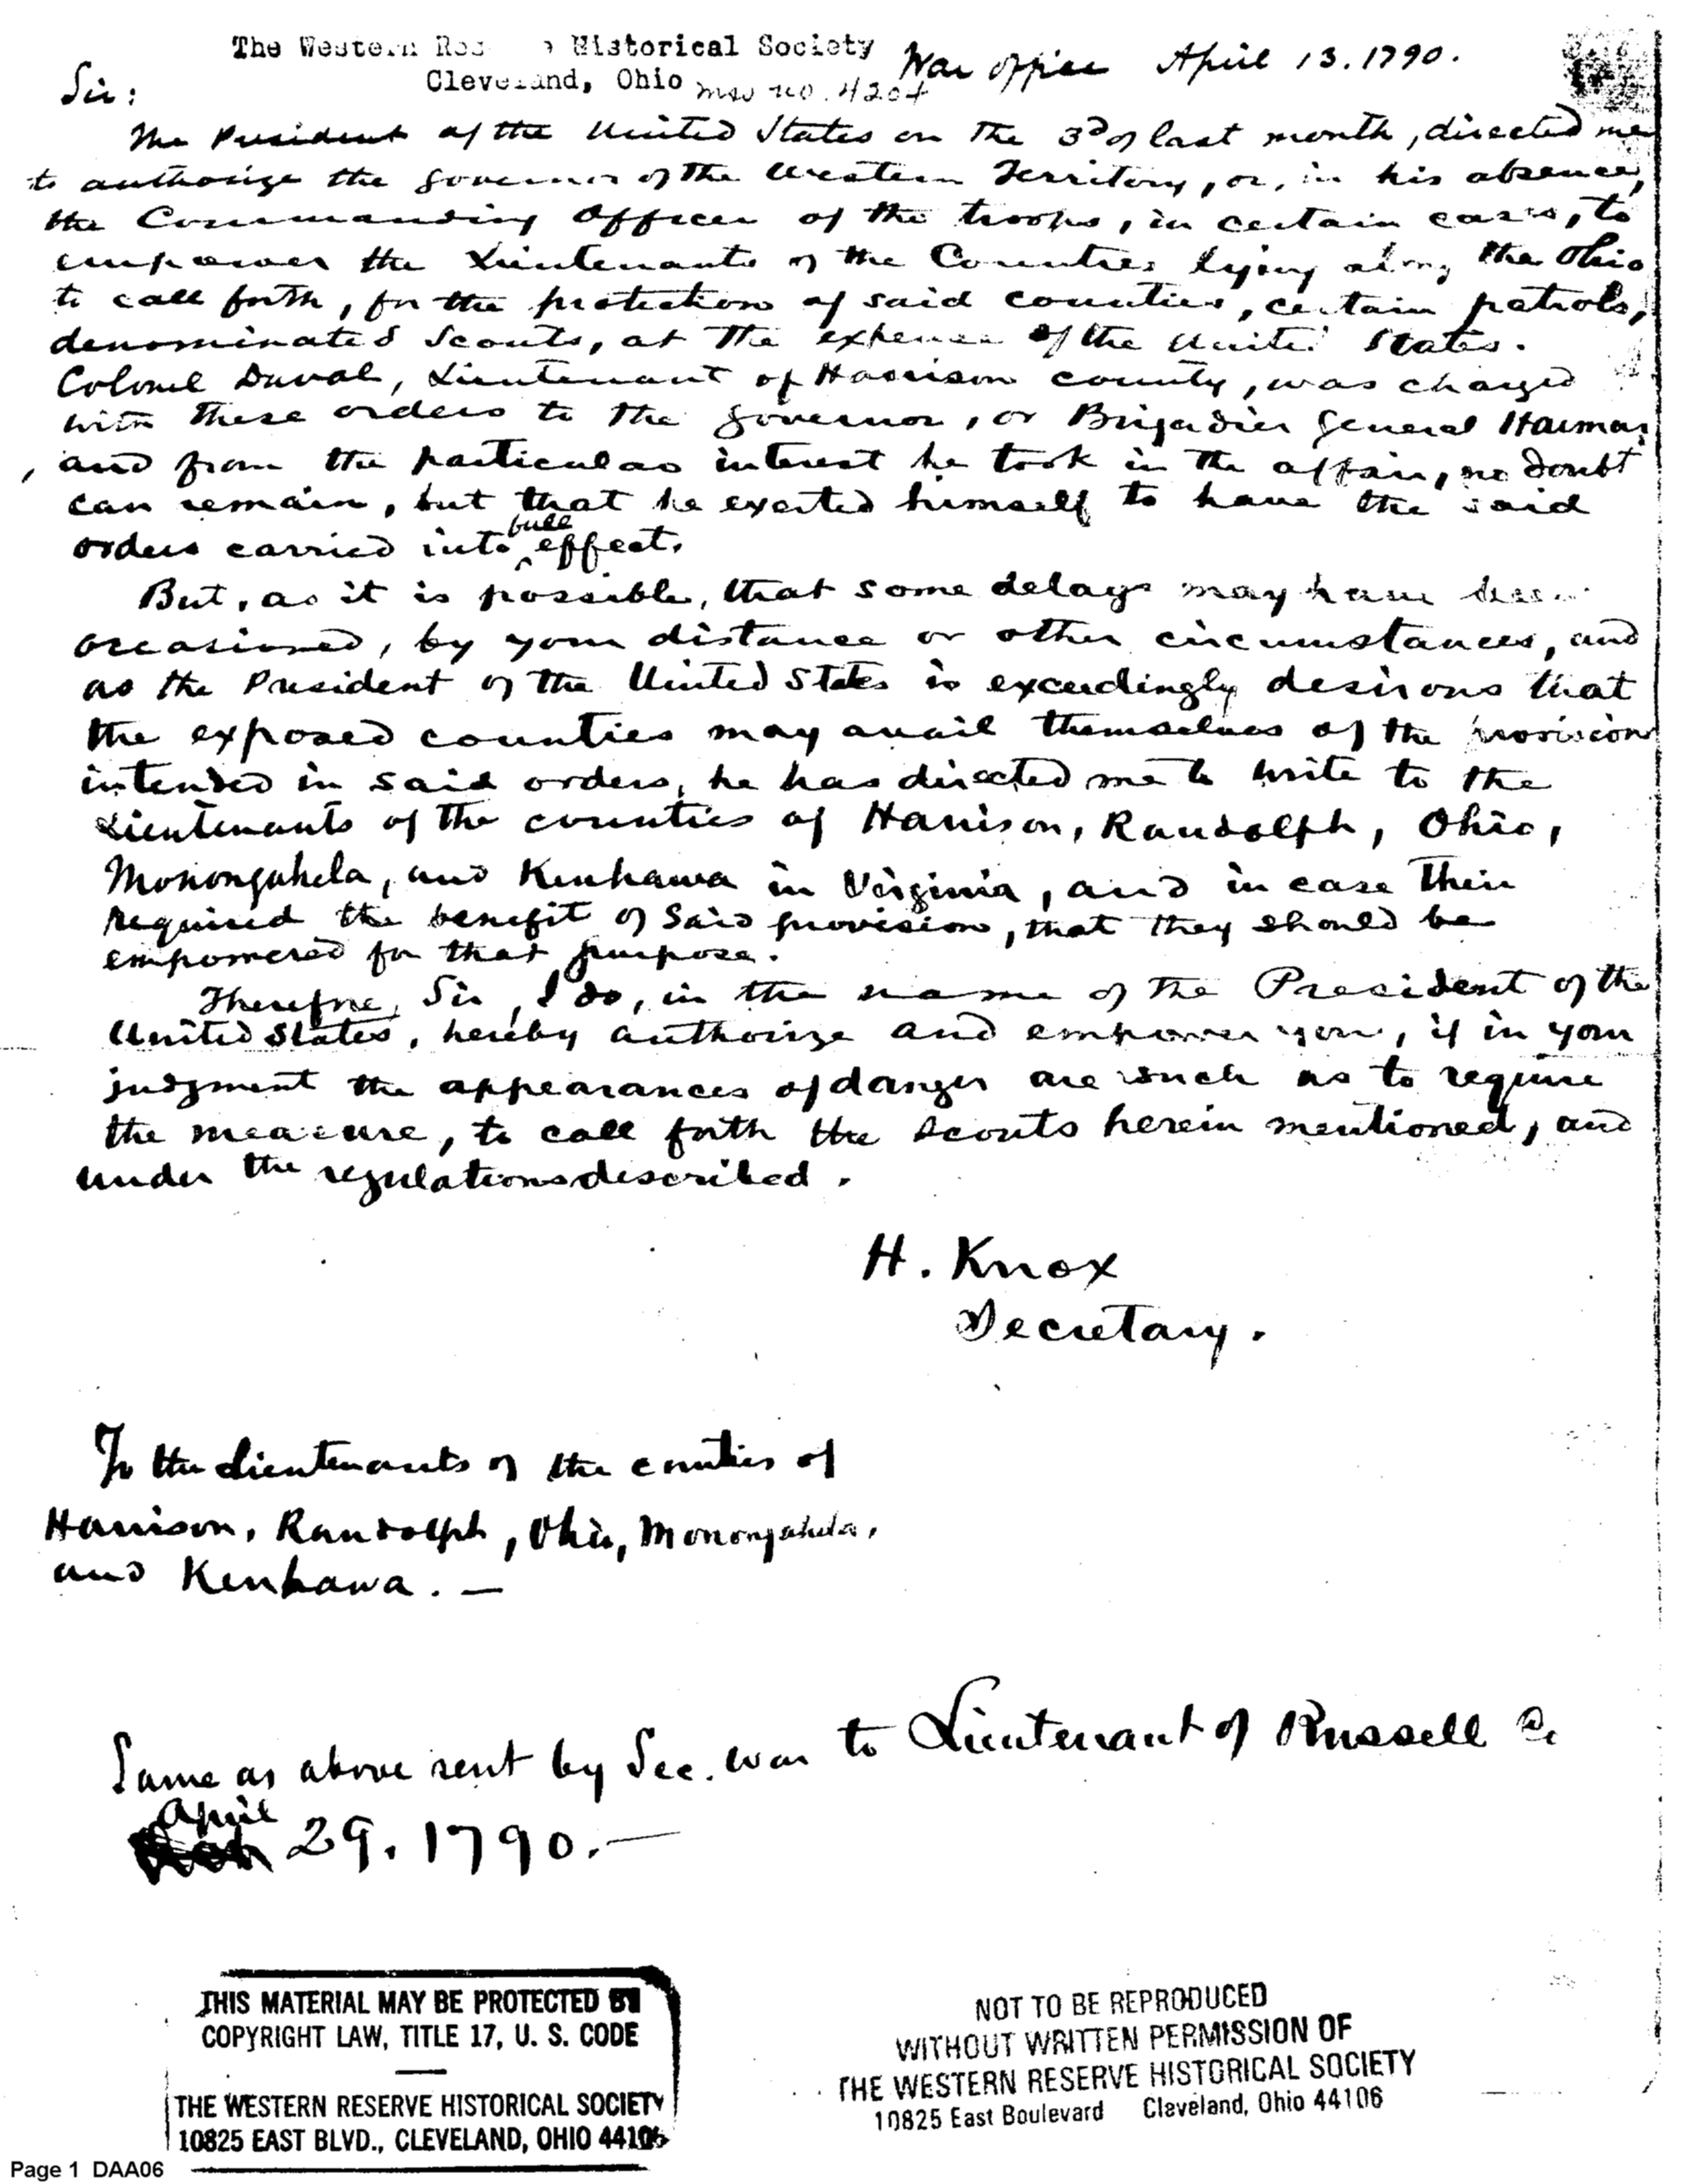 The Western Historical Society
Cleveland, Ohio mss no. 4204
War office April 13. 1790.
Sir:
The President of the United States on the 3d of last month, directed me
to authorize the governor of the Western Territory, or, in his absence,
the Commanding Officer of the troops, in certain cases, to
empower the Lieutenants of the Counties lying along the Ohio
to call forth, for the protection of said counties, certain patrols,
denominated Scouts, at the expense of the United States.
Colonel Duval, Lieutenant of Harrison county, was charged
with these orders to the governor, or Brigadier General Harmar,
and from the particular interest he took in the affair, no doubt
can remain, but that he exerted himself to have the said
orders carried into full effect.
But, as it is possible, that some delays may have been
occasioned, by your distance or other circumstances, and
as the President of the United States is exceedingly desirous that
the exposed counties may avail themselves of the provision
intended in said orders, he has directed me to write to the
Lieutenants of the counties of Harrison, Randolph, Ohio,
Monongahela, and Kenhawa in Virginia, and in case their
required the benefit of said provision, that they should be
empowered for that purpose.
Therefore, Sir, I do, in the name of the President of the
United States, hereby authorize and empower you, if in your
judgment the appearances of danger are such as to require
the measure, to call forth the scouts herein mentioned, and
under the regulations described.
H. Knox
Secretary.
To the Lieutenants of the counties of
Harrison, Randolph, Ohio, Monongahela,
and Kenhawa. —
Same as above sent by Sec. War to Lieutenant of Russell Co
April
29. 1790. —
THIS MATERIAL MAY BE PROTECTED BY
COPYRIGHT LAW, TITLE 17, U. S. CODE
THE WESTERN RESERVE HISTORICAL SOCIETY
10825 EAST BLVD., CLEVELAND, OHIO 44106
NOT TO BE REPRODUCED
WITHOUT WRITTEN PERMISSION OF
THE WESTERN RESERVE HISTORICAL SOCIETY
10825 East Boulevard Cleveland, Ohio 44106
Page 1 DAA06